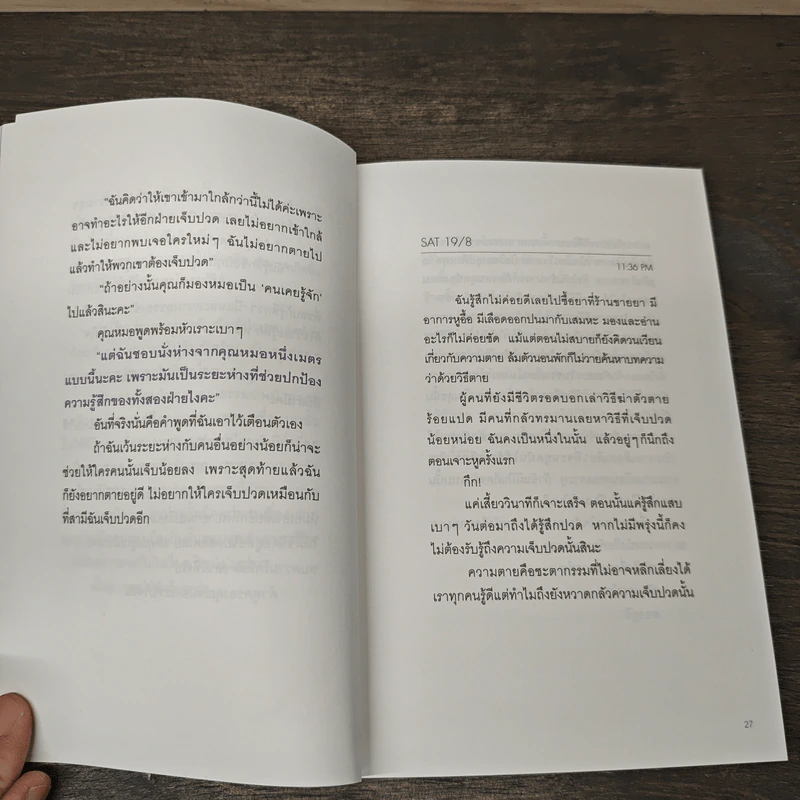 "ฉันคิดว่าให้เขาเข้ามาใกล้กว่านี้ไม่ได้ค่ะเพราะ
อาจทำอะไรให้อีกฝ่ายเจ็บปวด เลยไม่อยากเข้าใกล้
และไม่อยากพบเจอใครใหม่ๆ ฉันไม่อยากตายไป
แล้วทำให้พวกเขาต้องเจ็บปวด"
"ถ้าอย่างนั้นคุณก็มองหมอเป็น 'คนเคยรู้จัก'
ไปแล้วสินะคะ"
คุณหมอพูดพร้อมหัวเราะเบาๆ
"แต่ฉันชอบนั่งห่างจากคุณหมอหนึ่งเมตร
แบบนี้นะคะ เพราะมันเป็นระยะห่างที่ช่วยปกป้อง
ความรู้สึกของทั้งสองฝ่ายไงคะ"
อันที่จริงนั่นคือคำพูดที่ฉันเอาไว้เตือนตัวเอง
ถ้าฉันเว้นระยะห่างกับคนอื่นอย่างน้อยก็น่าจะ
ช่วยให้ใครคนนั้นเจ็บน้อยลง เพราะสุดท้ายแล้วฉัน
ก็ยังอยากตายอยู่ดี ไม่อยากให้ใครเจ็บปวดเหมือนกับ
ที่สามีฉันเจ็บปวดอีก
SAT 19/8
11:36 PM
ฉันรู้สึกไม่ค่อยดีเลยไปซื้อยาที่ร้านขายยา มี
อาการหูอื้อ มีเลือดออกปนมากับเสมหะ มองและอ่าน
อะไรก็ไม่ค่อยชัด แม้แต่ตอนไม่สบายก็ยังคิดวนเวียน
เกี่ยวกับความตาย ล้มตัวนอนพักก็ไม่วายค้นหาบทความ
ว่าด้วยวิธีตาย
ผู้คนที่ยังมีชีวิตรอดบอกเล่าวิธีฆ่าตัวตาย
ร้อยแปด มีคนที่กลัวทรมานเลยหาวิธีที่เจ็บปวด
น้อยหน่อย ฉันคงเป็นหนึ่งในนั้น แล้วอยู่ๆ ก็นึกถึง
ตอนเจาะหูครั้งแรก
กึก!
แค่เสี้ยววินาทีก็เจาะเสร็จ ตอนนั้นแค่รู้สึกแสบ
เบาๆ วันต่อมาถึงได้รู้สึกปวด หากไม่มีพรุ่งนี้ก็คง
ไม่ต้องรับรู้ถึงความเจ็บปวดนั้นสินะ
ความตายคือชะตากรรมที่ไม่อาจหลีกเลี่ยงได้
เราทุกคนรู้ดีแต่ทำไมถึงยังหวาดกลัวความเจ็บปวดนั้น
27